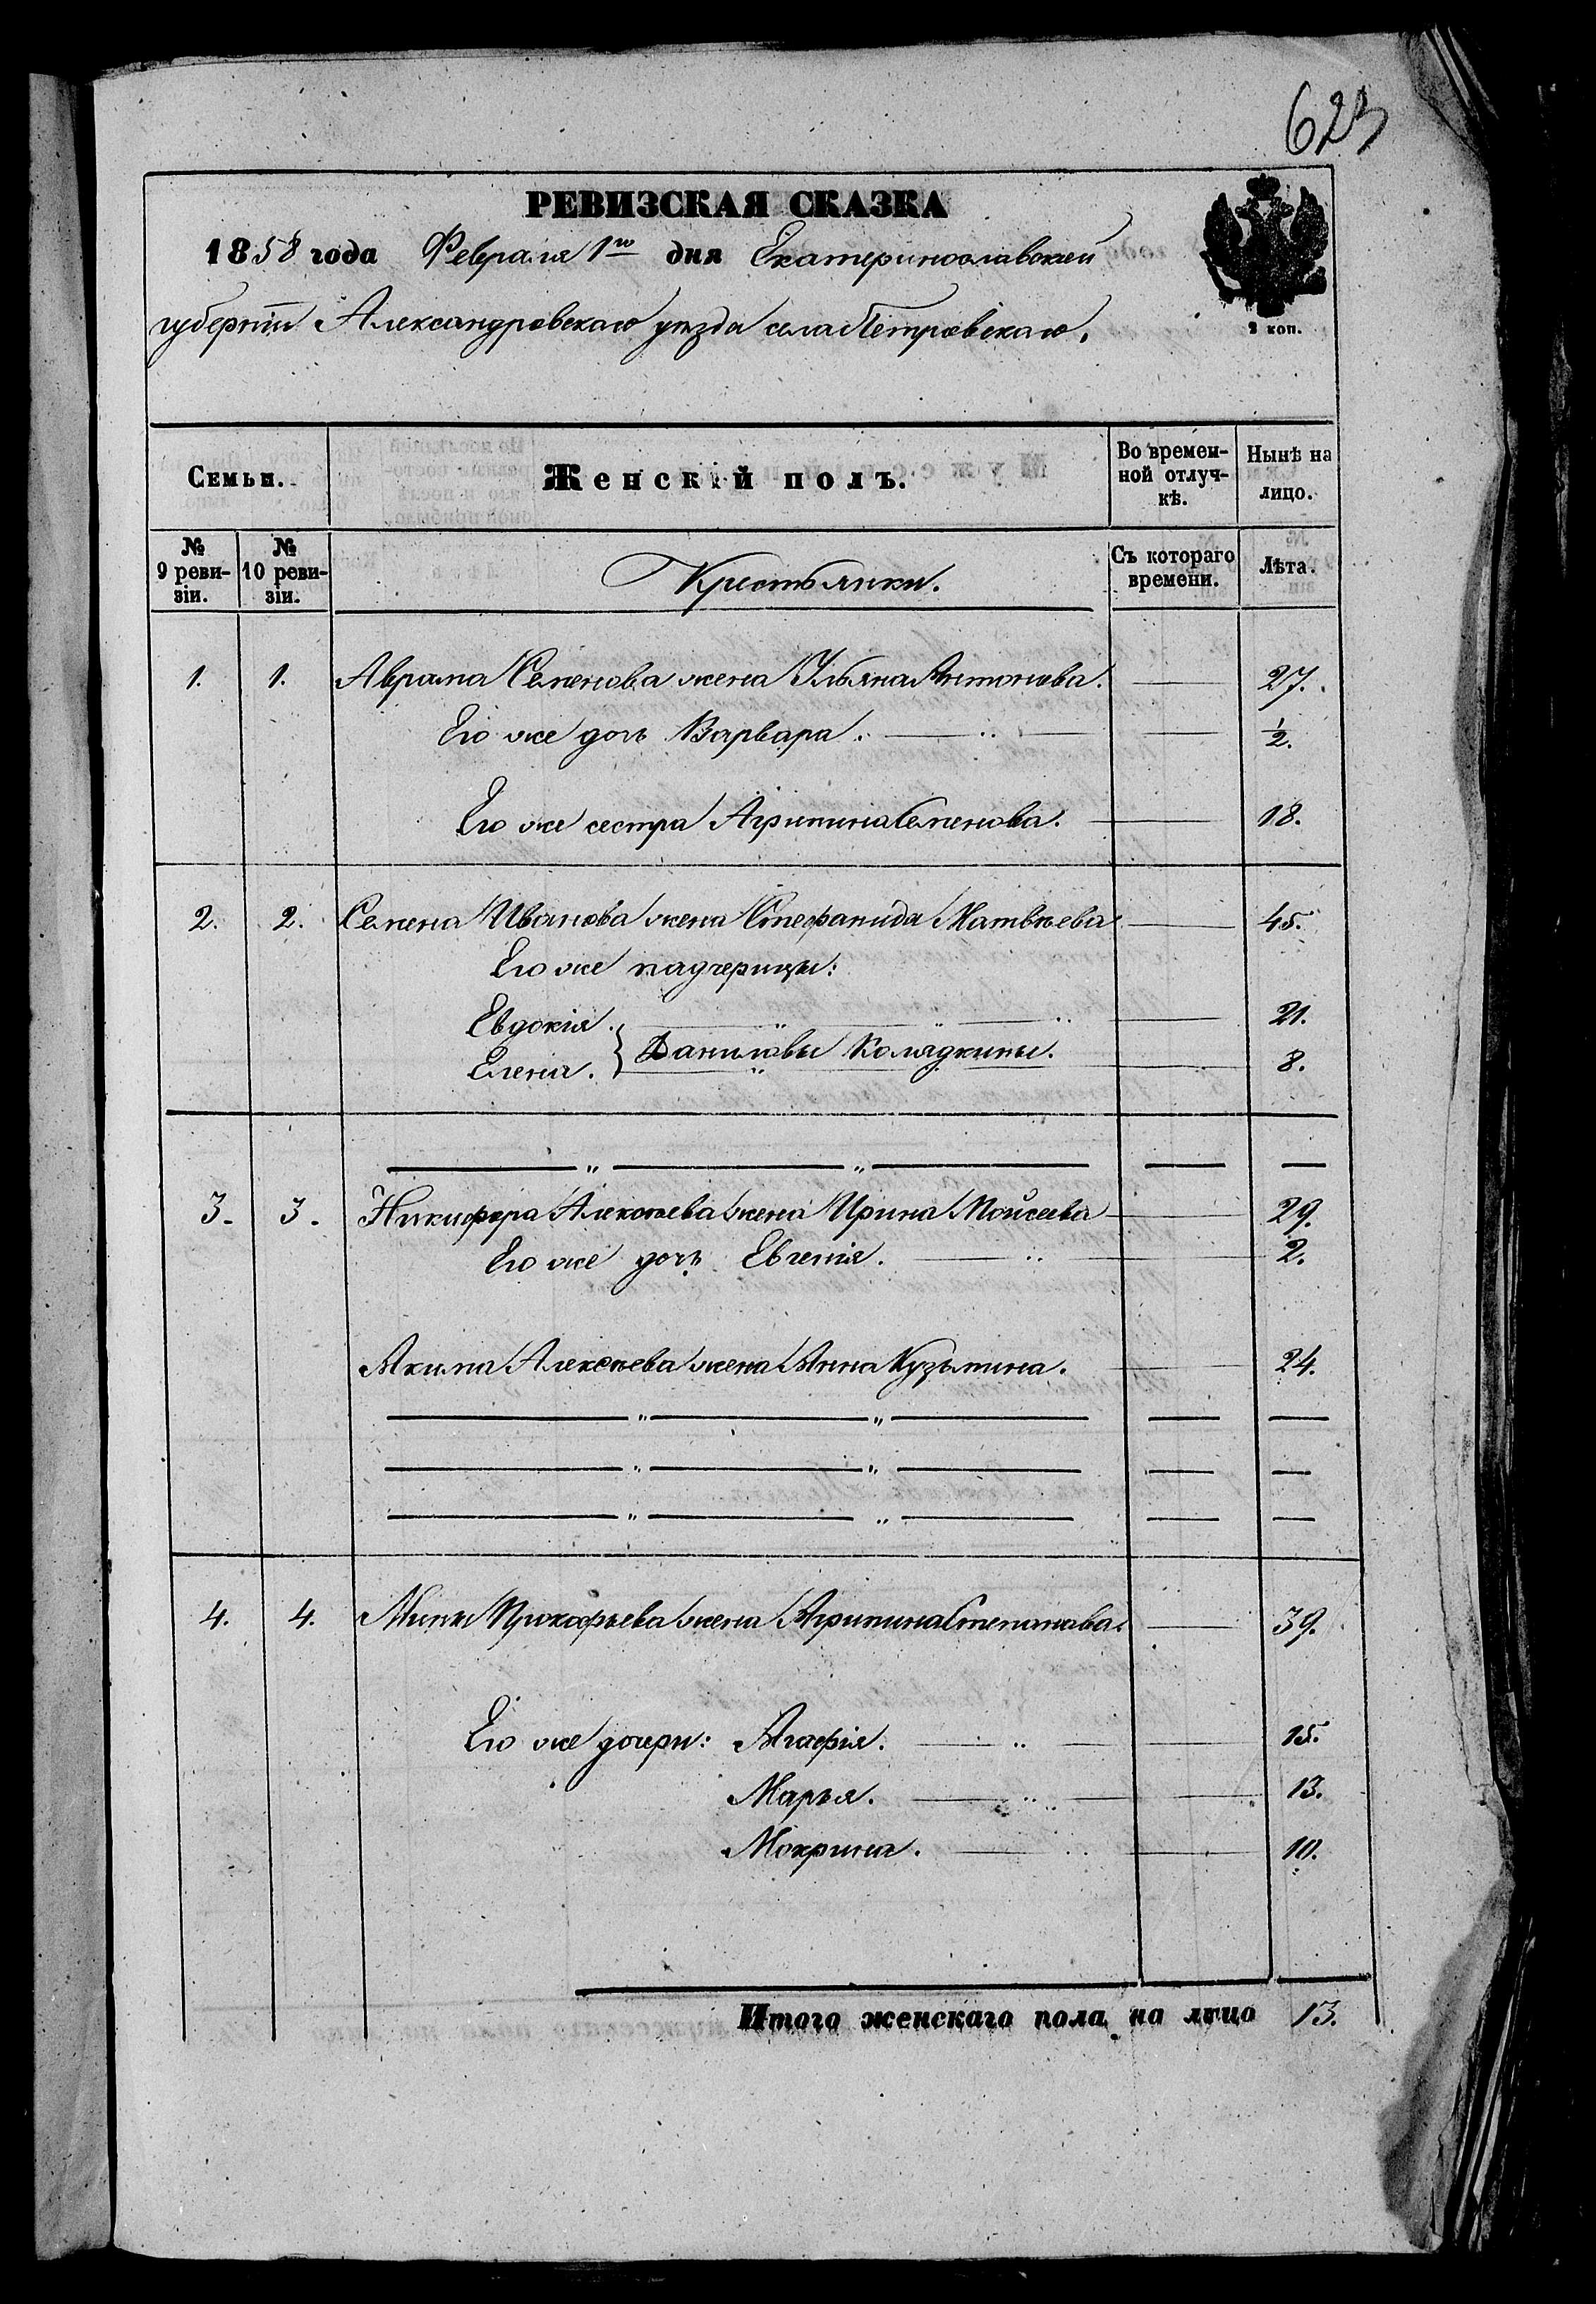 623
РЕВИЗСКАЯ СКАЗКА
1858 года Февраля 1го дня Екатеринославской
2 коп.
губерніи Александровскаго уѣзда села Петровскаго.
Семьи. Женскій полъ. Во времен-ной отлуч-кѣ. Нынѣ на лицо.
№ 9 реви-зіи. № 10 реви-зіи. Крестьянки. Съ котораго времени. Лѣта.
1. 1. Аврама Семенова жена Ульяна Антонова. 27.
Его же дочь Варвара. 1/2.
Его же сестра Агрипина Семенова. 18.
2. 2. Семена Иванова жена Стефанида Матвѣева 45.
Его же падчерицы:
Евдокія. 21.
} Даниловы Колядкины.
Елена. 8.
3. 3. Никифора Алексѣева жена Ирина Мойсеева 29.
Его же дочь Евгенія. 2.
Акима Алексѣева жена Анна Кузьмина. 24.
4. 4. Мины Прокофьева жена Агрипина Степанова. 39.
Его же дочери: Агафія. 15.
Марья. 13.
Мокрина. 10.
Итого женскаго пола на лицо 13.